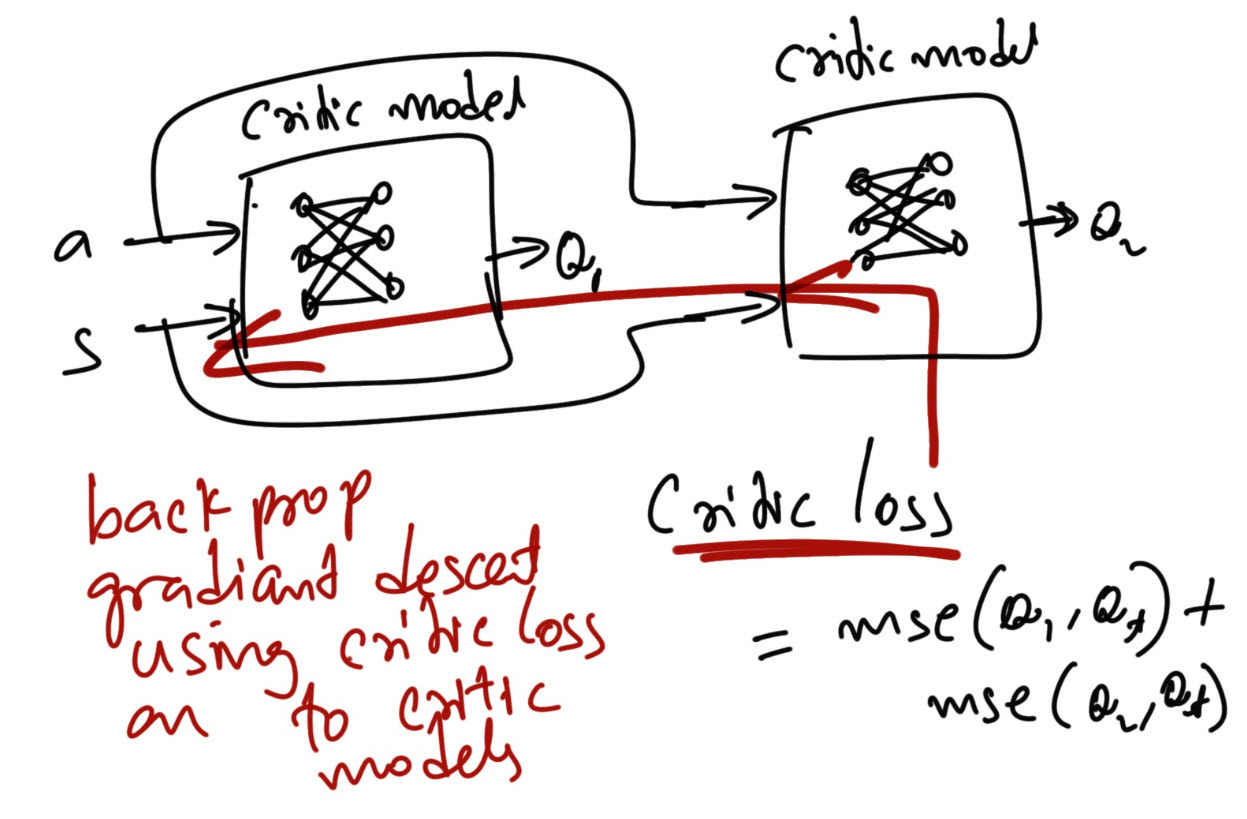 critic model
critic model
a
s
Q₁
Q₂
back prop
gradiant descent
using critic loss
on to critic
models
Critic loss
= mse(Q₁, Qₜ) +
mse(Q₂, Qₜ)